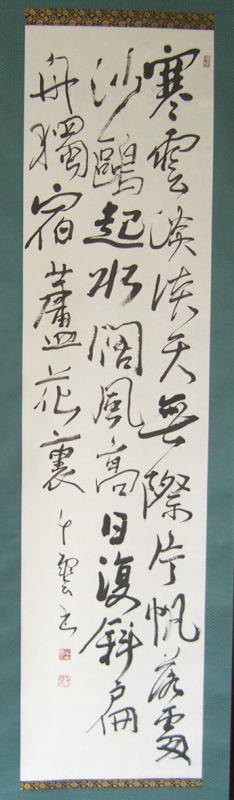 寒雲淡淡天無際片帆落處
沙鷗起水闊風高日復斜扁
舟獨宿蘆花裏